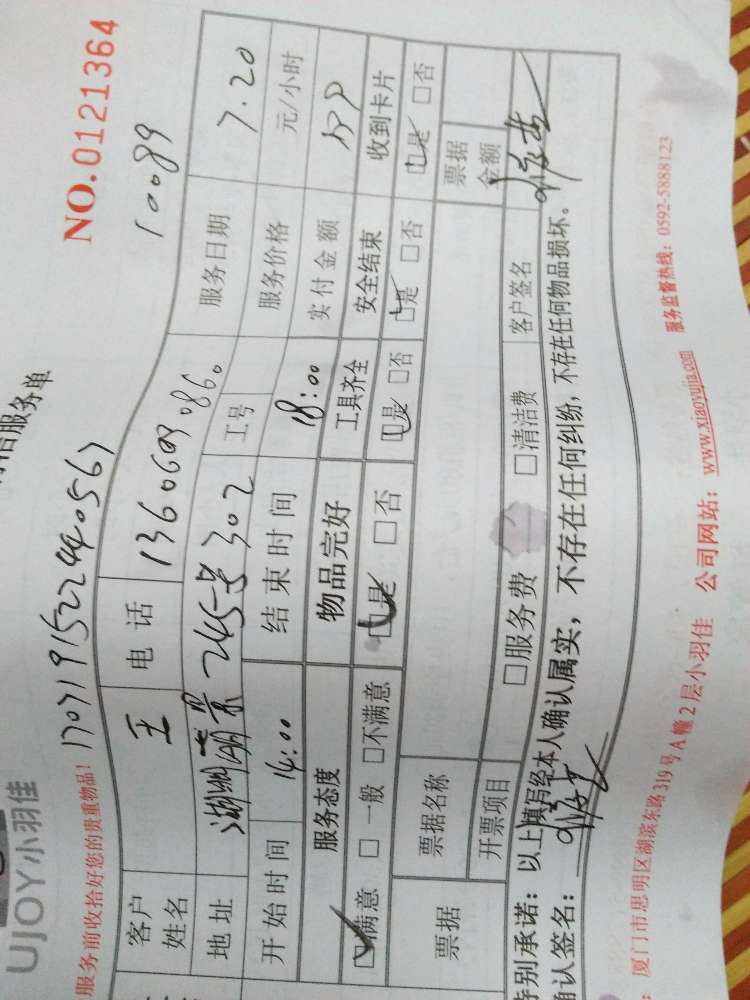 UJOY小羽佳
服务单
NO.0121364
服务前收拾好您的贵重物品! 170719152240567
10089
客户姓名 王 电话 13606090860 服务日期 7.20
地址 湖景245号302 工号 服务价格 元/小时
开始时间 14:00 结束时间 18:00 实付金额
服务态度 物品完好 工具齐全 安全结束 收到卡片
□满意 □一般 □不满意 □是 □否 □是 □否 □是 □否 □是 □否
票据 票据名称 票据金额
开票项目 □服务费 □清洁费 客户签名
特别承诺:以上填写经本人确认属实,不存在任何纠纷,不存在任何物品损坏。
确认签名:
厦门市思明区湖滨东路319号A幢2层小羽佳 公司网站:www.xiaoyujia.com 服务监督热线:0592-5888123